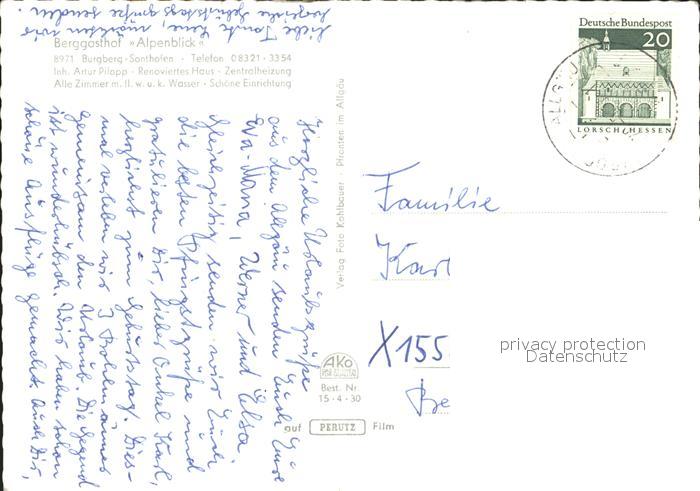 Berggasthof »Alpenblick«
8971 Burgberg-Sonthofen · Telefon 08321 · 3354
Inh. Artur Pilopp · Renoviertes Haus · Zentralheizung
Alle Zimmer m. fl. w. u. k. Wasser · Schöne Einrichtung
Herzliche Urlaubsgrüße
aus dem Allgäu senden Euch Eure
Eva-Maria, Werner und Elsa.
Gleichzeitig senden wir Euch
die besten Pfingstgrüße und
gratulieren Dir, lieber Onkel Karl,
herzlichst zum Geburtstag. Dies-
mal verleben wir 3 Wochen
gemeinsam den Urlaub. Die Gegend
ist wunderhübsch. Wir haben schon
schöne Ausflüge gemacht. Auch Dir,
liebe Tante Lene, möchten wir
herzliche Geburtstagsgrüße senden.
Verlag Foto Kohlbauer · Pfronten im Allgäu
AKO
Best. Nr.
15·4·30
auf PERUTZ Film
Deutsche Bundespost
20
LORSCH/HESSEN
Familie
Karl
X155
Be
privacy protection
Datenschutz